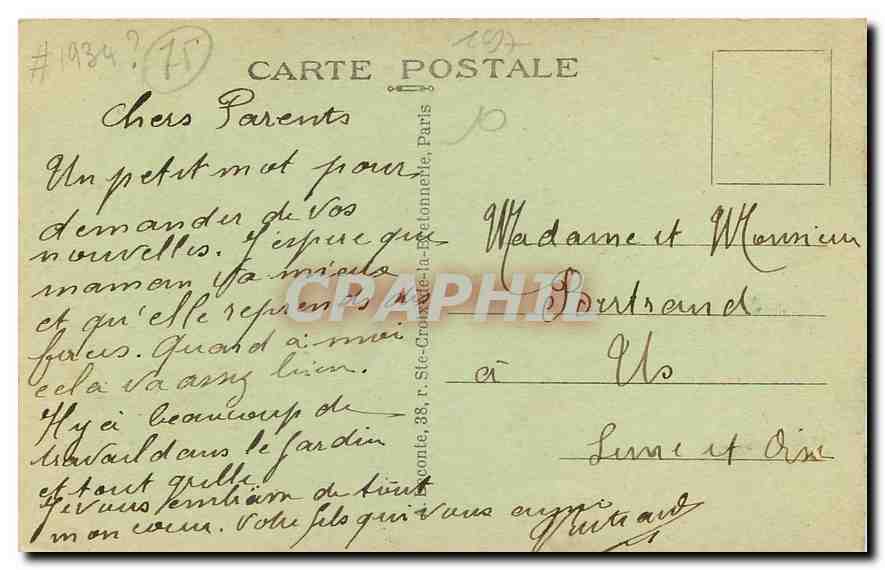 #1934?
75
197
CARTE POSTALE
Chers Parents
Un petit mot pour
demander de vos
nouvelles. J'espere que
maman va mieux
et qu'elle reprends des
forces. Quand à moi
cela va assez bien.
Il y à beaucoup de
travail dans le jardin
et tout grille
Je vous embrasse de tout
mon cœur. Votre fils qui vous aime
Bertrand
Leconte, 38, r. Ste-Croix-de-la-Bretonnerie, Paris
Madame et Monsieur
Bertrand
à Us
Seine et Oise
CPAPHIL